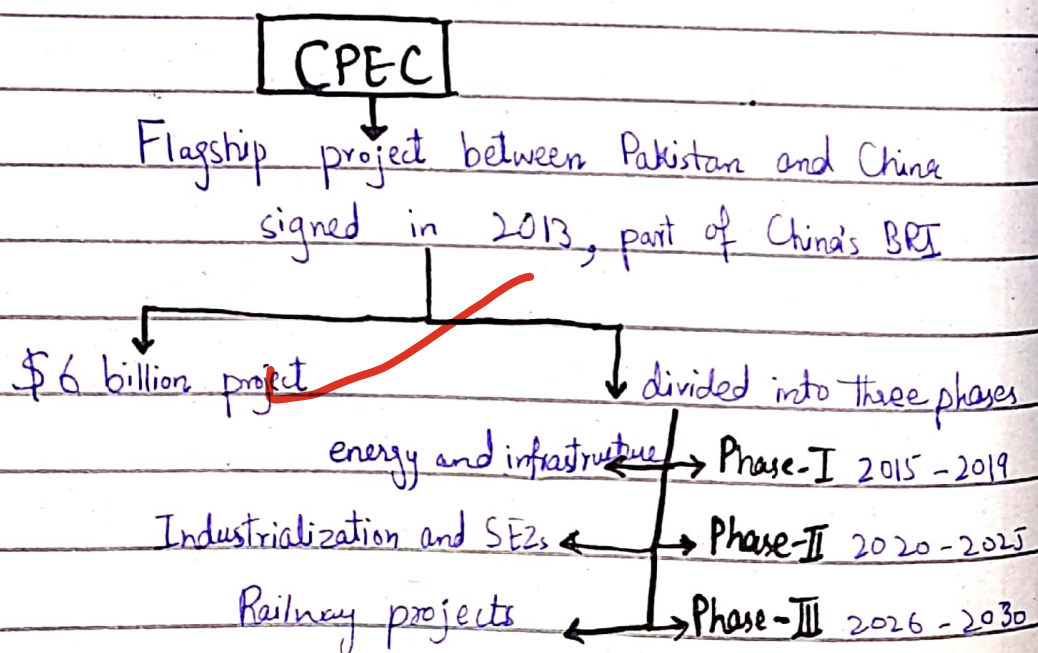 CPEC
Flagship project between Pakistan and China
signed in 2013, part of China's BRI
$6 billion project
divided into three phases
energy and infrastructure Phase-I 2015-2019
Industrialization and SEZs Phase-II 2020-2025
Railway projects Phase-III 2026-2030